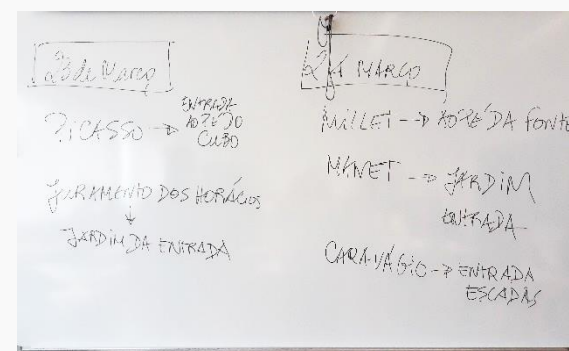 23 de Março
PICASSO → ENTRADA
AO PÉ DO
CUBO
JURAMENTO DOS HORÁCIOS
↓
JARDIM DA ENTRADA
24 MARÇO
MILLET → AO PÉ DA FONTE
MANET → JARDIM
ENTRADA
CARAVÁGIO → ENTRADA
ESCADAS